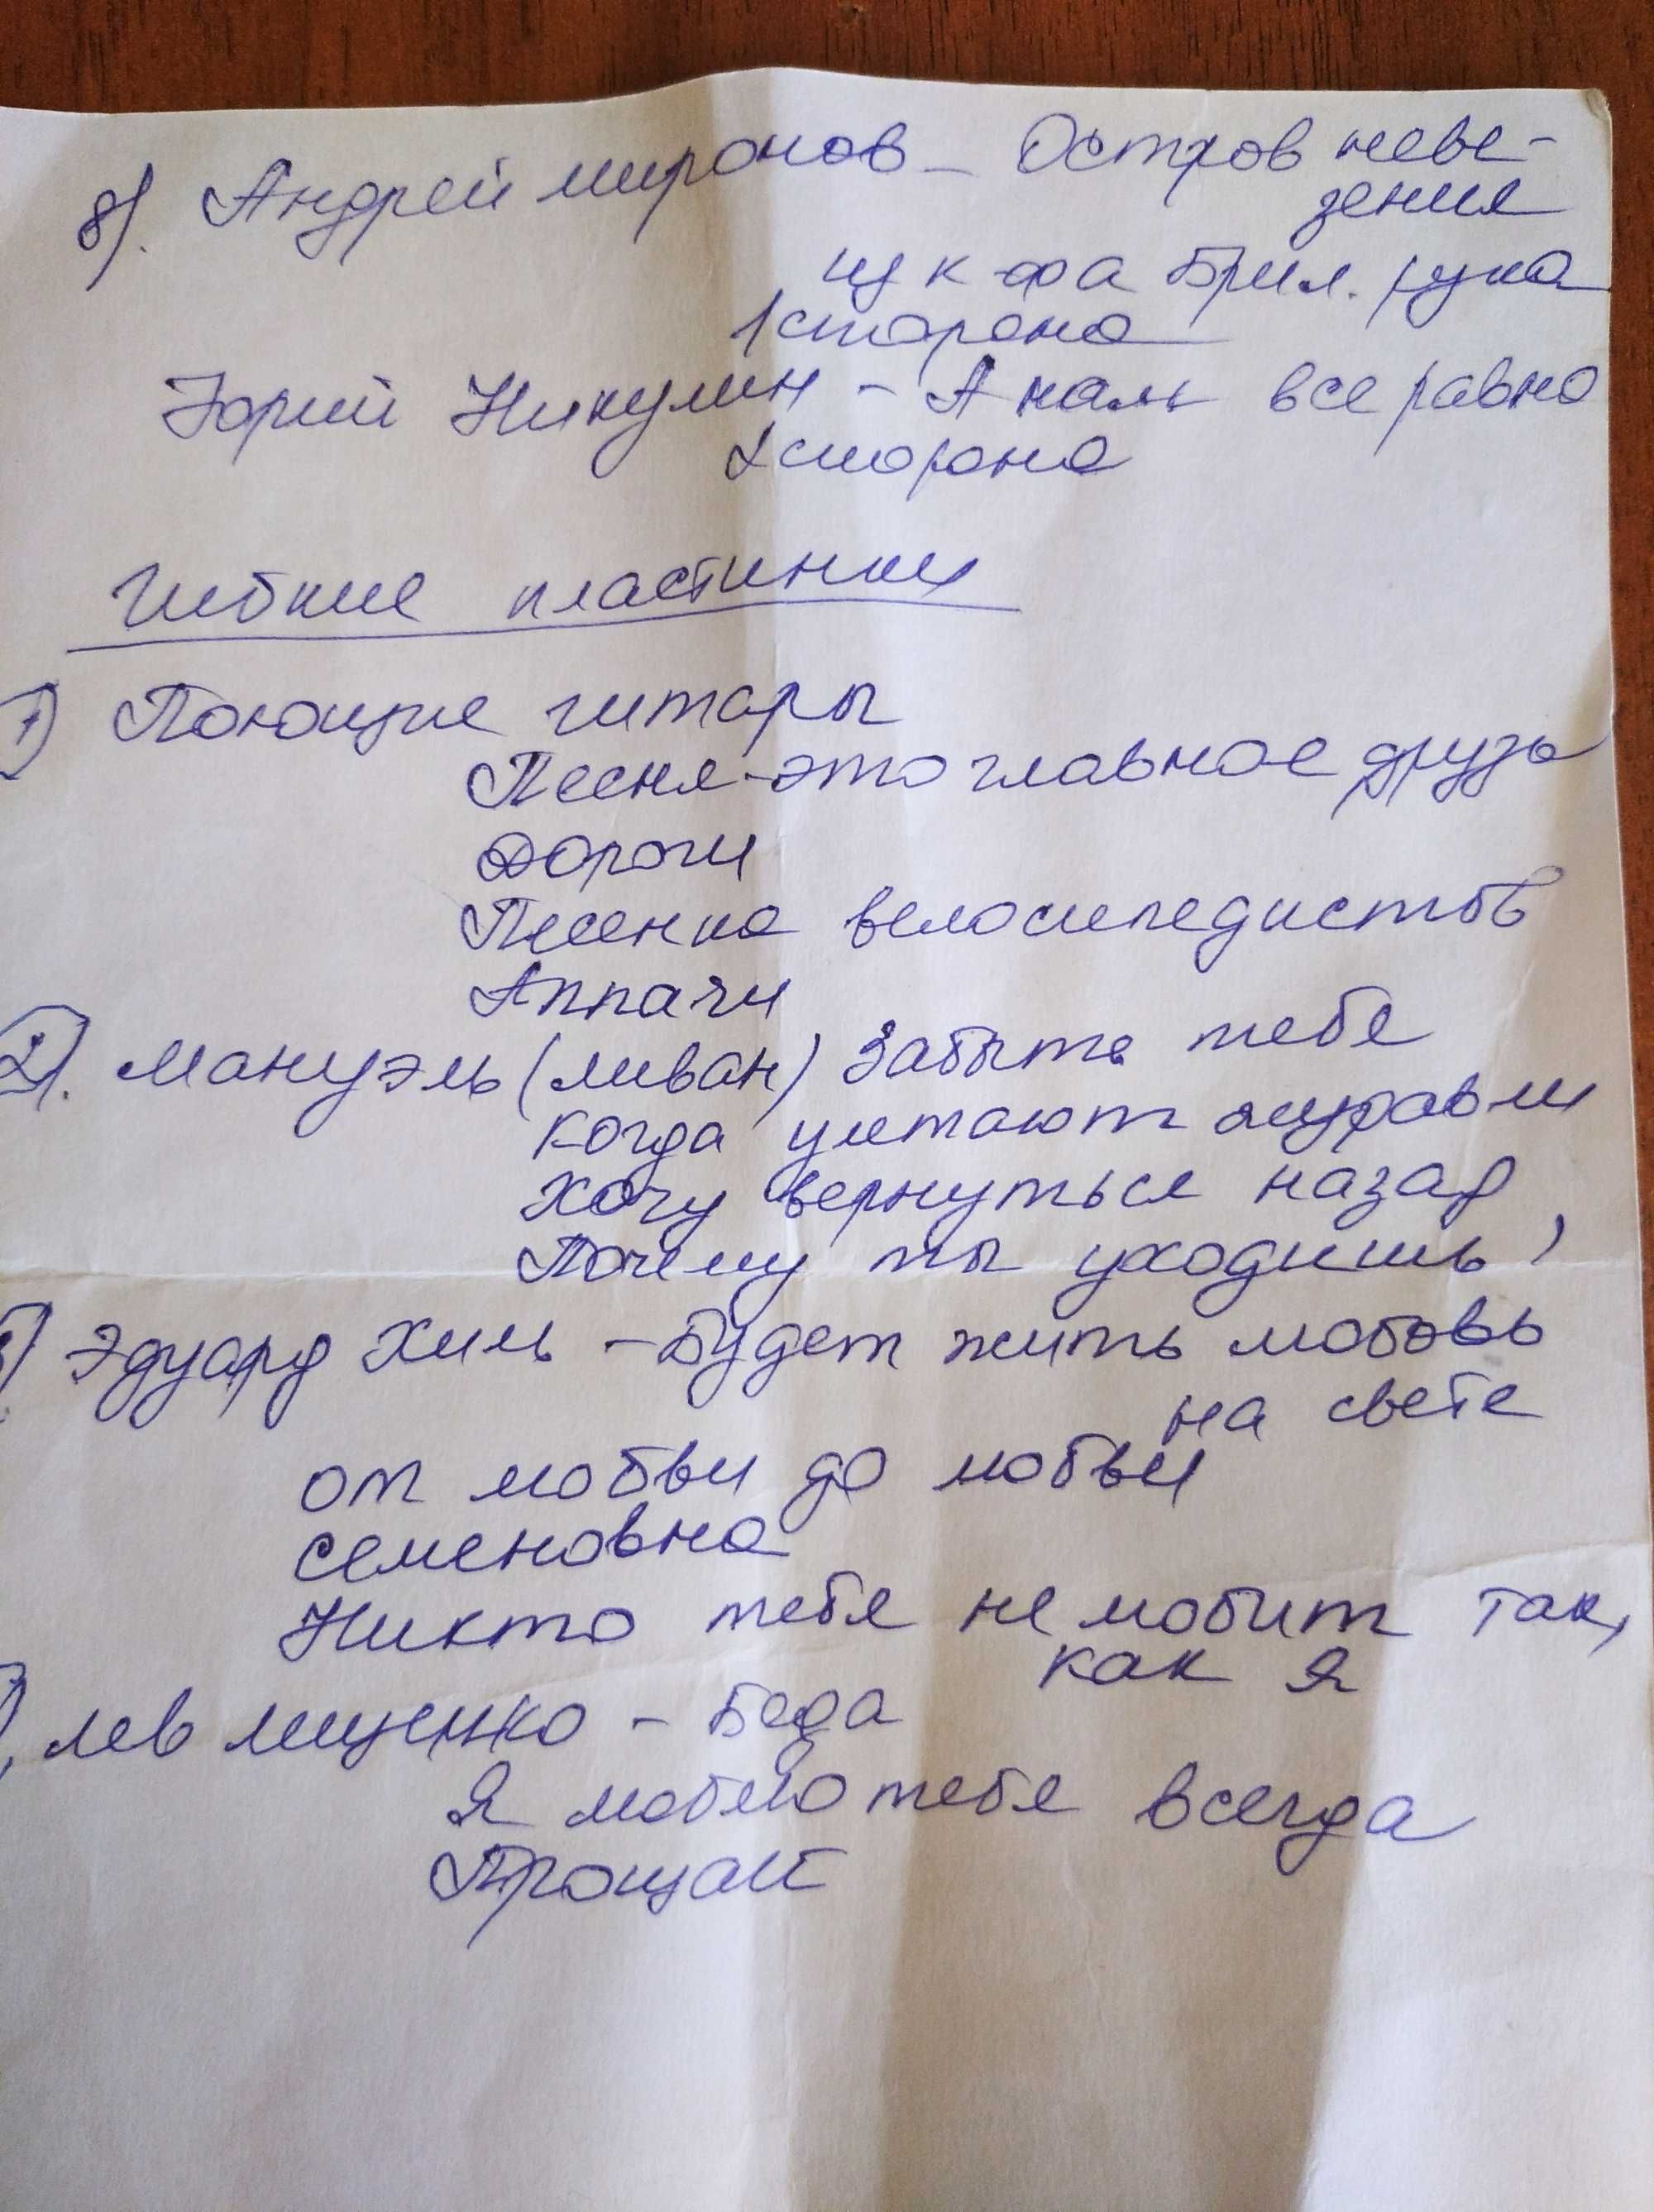 8). Андрей Миронов - Остров неве-
зения
из к-фа Брил. рука
1 сторона
Юрий Никулин - А нам все равно
2 сторона
Гибкие пластинки
1) Поющие гитары
Песня - это главное друзья
Дороги
Песенка велосипедистов
Аппачи
2). Мануэль (Ливан) Забыть тебя
Когда улетают журавли
Хочу вернуться назад
Почему ты уходишь
3) Эдуард Хиль - Будет жить любовь
на свете
От любви до любви
Семеновна
Никто тебя не любит так,
как я
Лев Лещенко - Беда
Я люблю тебя всегда
Прощай